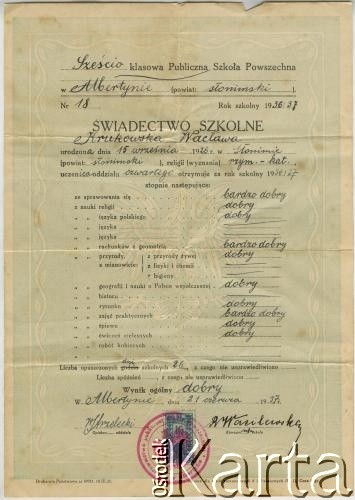 Sześcio klasowa Publiczna Szkoła Powszechna
w Albertynie (powiat: słonimski).
Nr 18 Rok szkolny 1936/37
ŚWIADECTWO SZKOLNE
Krukowska Wacława
urodzona dnia 15 września 1926 r. w Słonimie
(powiat: słonimski), religii (wyznania) rzym.-kat.
uczenica oddziału czwartego otrzymuje za rok szkolny 1936/37
stopnie następujące:
ze sprawowania się bardzo dobry
z nauki religii dobry
" " języka polskiego dobry
" " języka
" " języka
" " rachunków z geometrią bardzo dobry
" " przyrody, z przyrody żywej dobry
a mianowicie: z fizyki i chemii
z higieny
" " geografii i nauki o Polsce współczesnej dobry
" " historii
" " rysunku dobry
" " zajęć praktycznych bardzo dobry
" " śpiewu dobry
" " ćwiczeń cielesnych dobry
" " robót kobiecych
Liczba opuszczonych dni szkolnych 26, z czego nie usprawiedliwiono
Liczba spóźnień, z czego nie usprawiedliwiono
Wynik ogólny dobry
W Albertynie dnia 21 czerwca 1937.
ośrodek
Karta